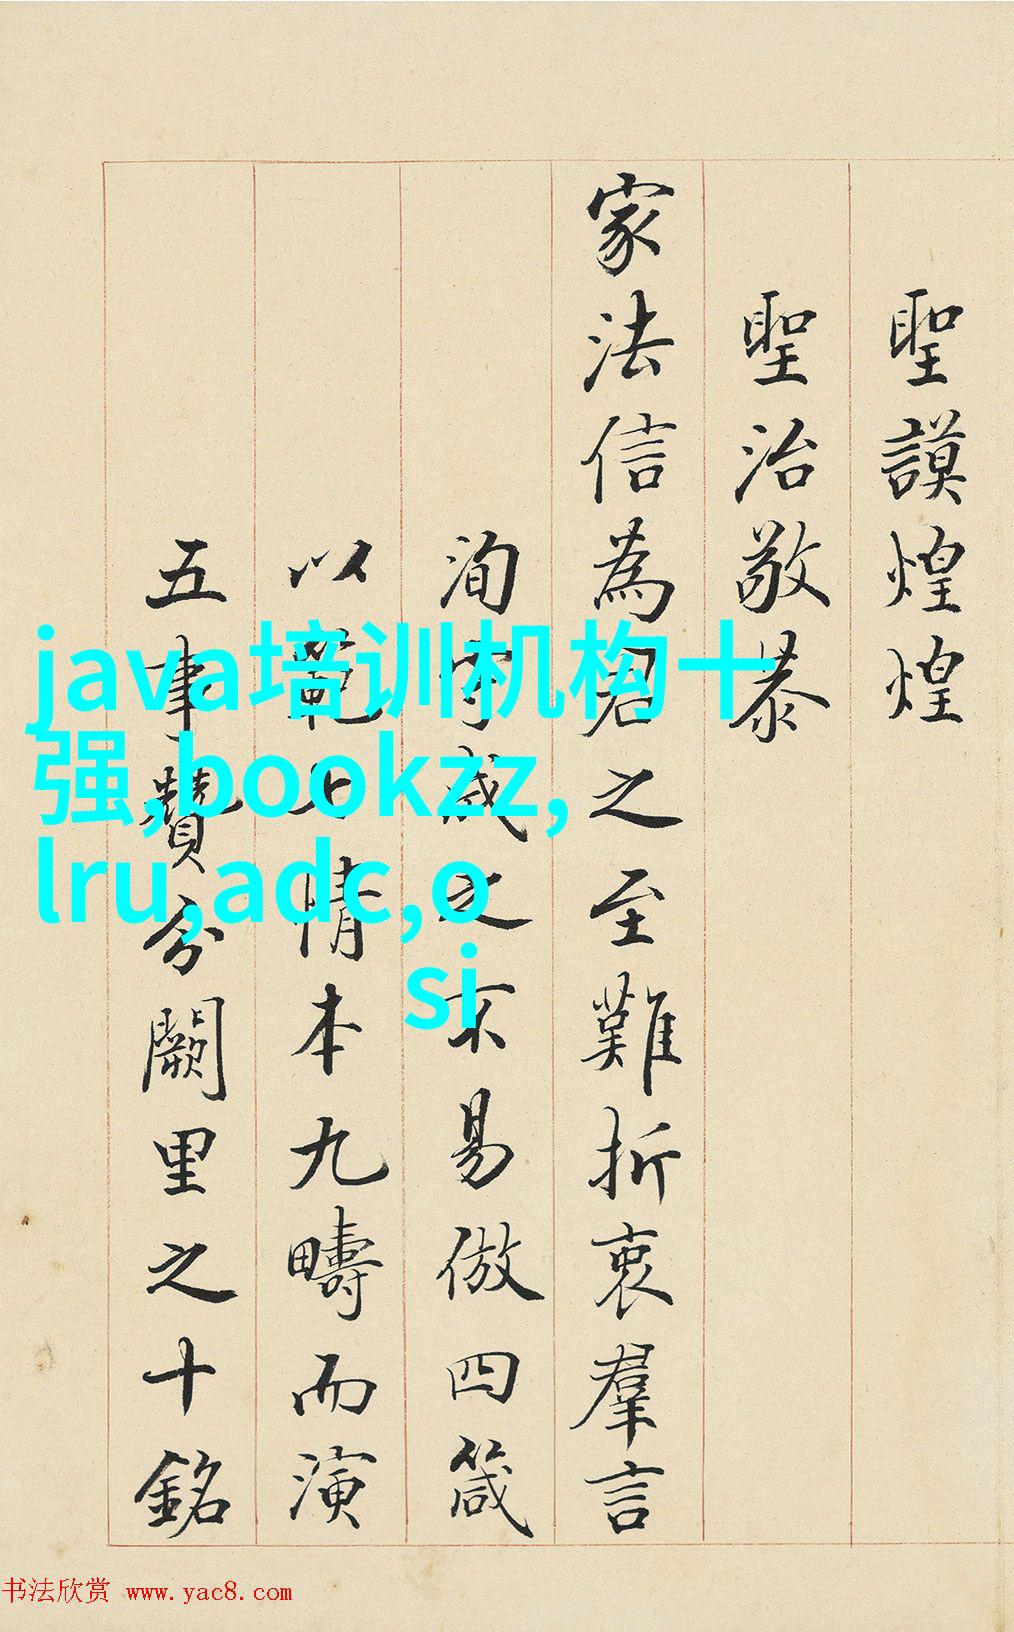 聖謨煌煌
聖治敬恭
家法信為君之至難折衷羣言
洵守成之京易倣四箴
以範七情本九疇而演
五事贊分闕里之十銘
java培训机构十
强,bookzz,
lru,adc,o
si
书法欣赏 www.yac8.com